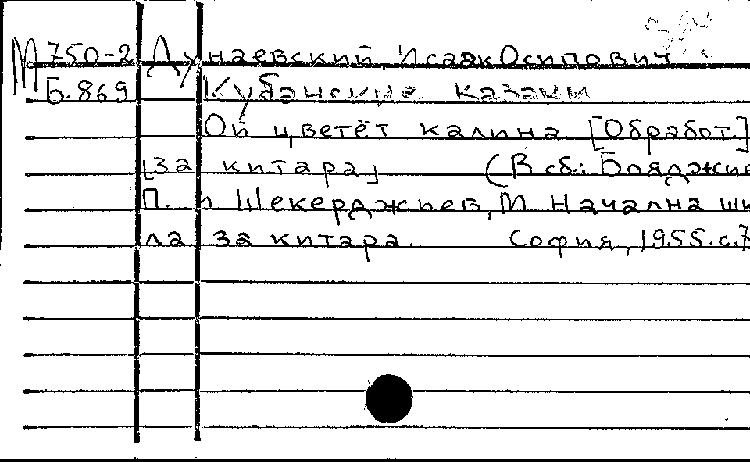 М 750-2 Дунаевский, Исаак Осипович
Б.869 Кубанские казаки
Ой цветёт калина [Обработ.]
[за китара] (В сб.: Бояджие
П. и Шекерджиев, М. Начална шко
ла за китара. София, 1955. с.7